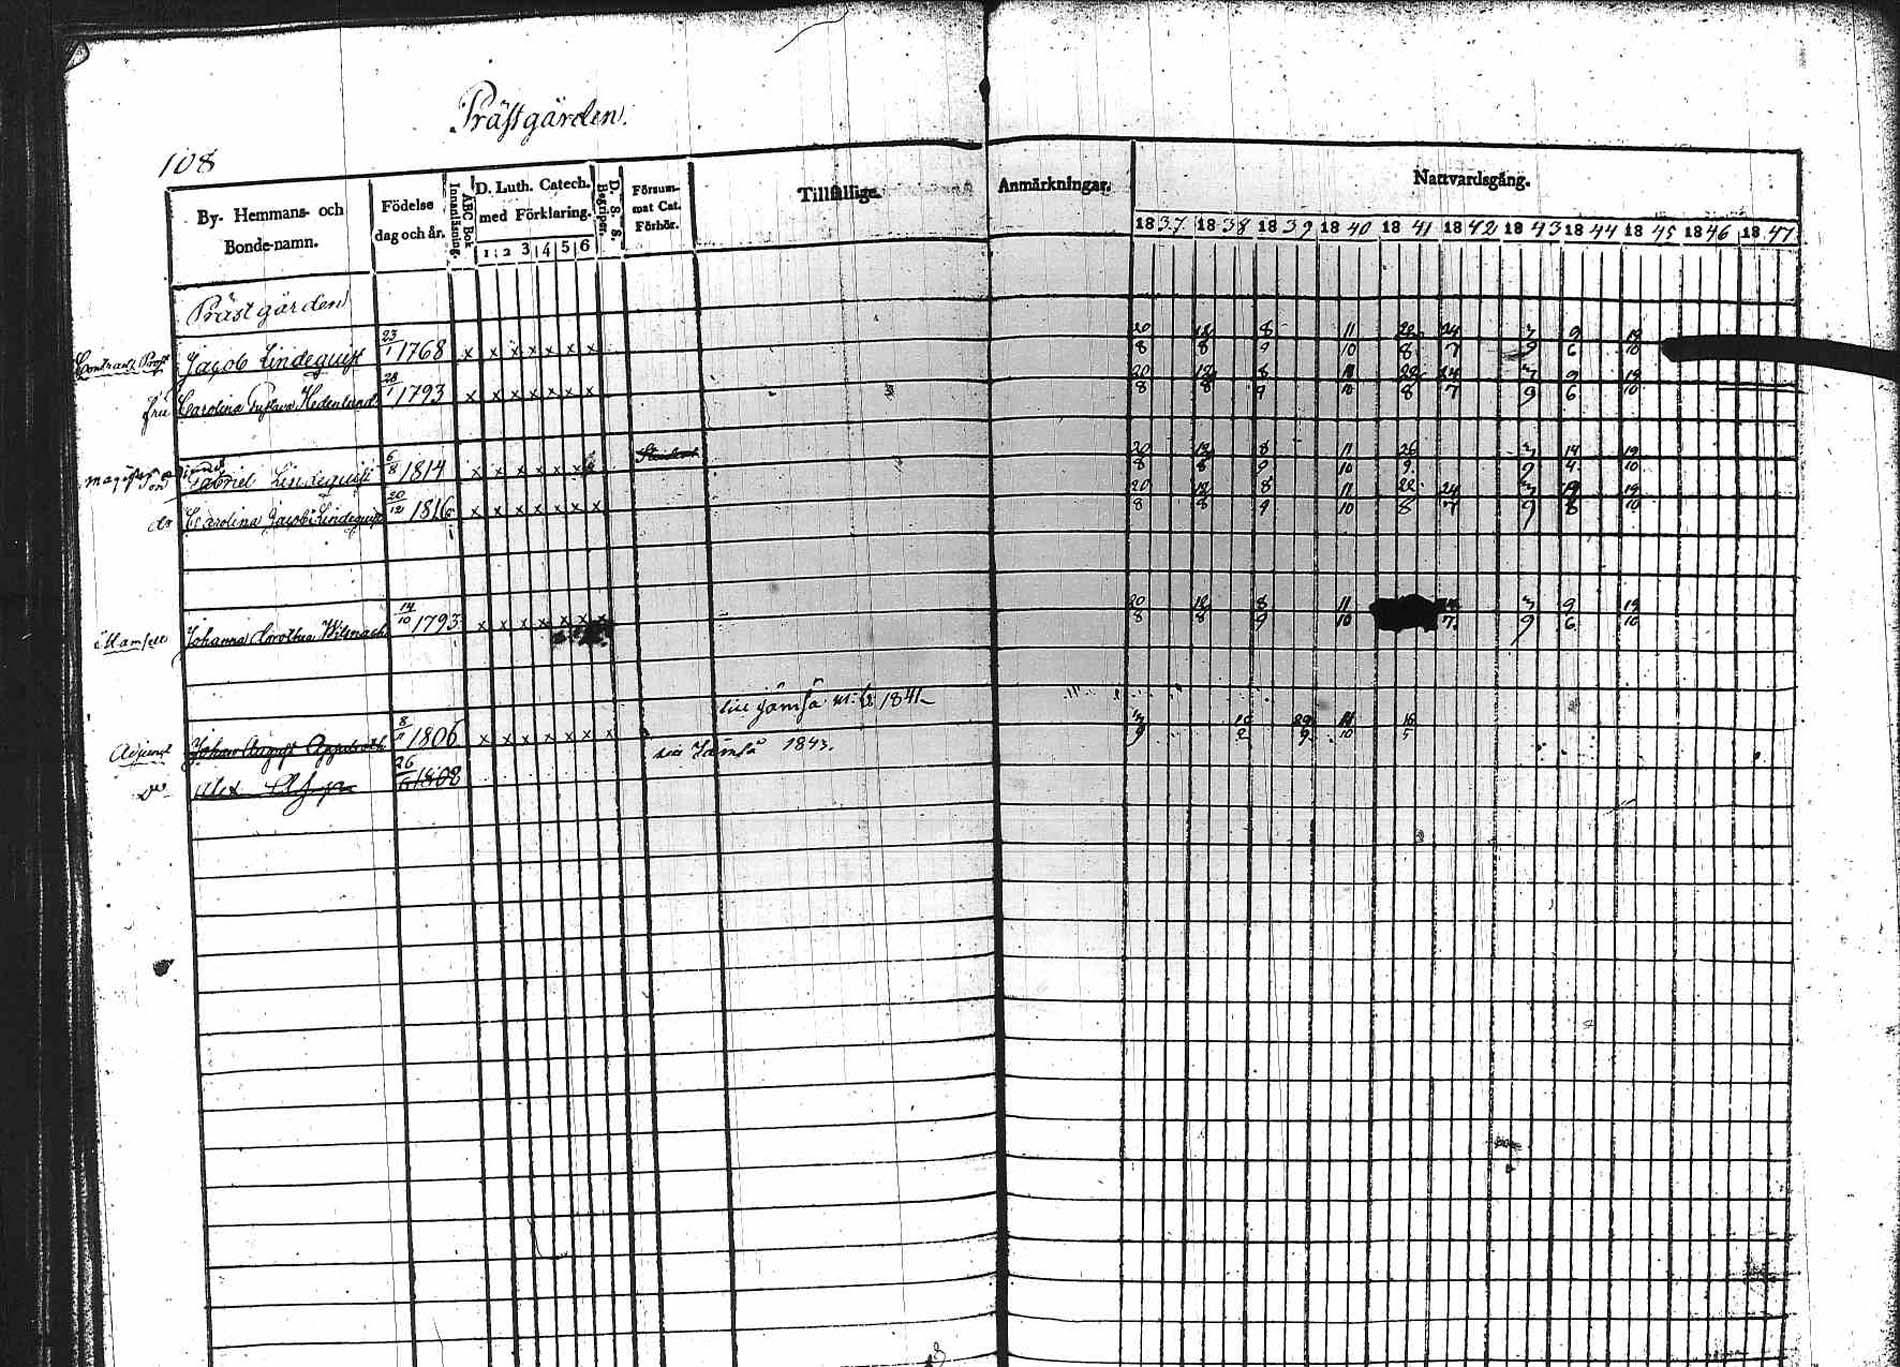 Prästgården.
108
By- Hemmans- och Bonde-namn.
Födelse dag och år.
ABC Bok Innanläsning.
D. Luth. Catech. med Förklaring.
1 2 3 4 5 6
D. S. S. Begripen.
Försummat Cat. Förhör.
Tillfällige
Anmärkningar.
Nattvardsgång.
1837 1838 1839 1840 1841 1842 1843 1844 1845 1846 1847
Prästgården
Contracts Prost Jacob Lindequist 23/1 1768 x x x x x x x 20/8 12/8 8/9 11/10 22/8 24/7 3/9 9/6 19/10
fru Carolina Gustava Hedenlund 28/1 1793 x x x x x x x 20/8 12/8 8/9 11/10 22/8 24/7 3/9 9/6 19/10
Gabriel Lindequist 6/8 1814 x x x x x x 20/8 12/8 8/9 11/10 26/9 3/9 14/4 19/10
do Carolina Jacobi Lindequist 20/12 1816 x x x x x x x 20/8 12/8 8/9 11/10 22/8 24/7 3/9 19/8 19/10
Mamsell Johanna Dorothea 14/10 1793 x x x x x x x 20/8 12/8 8/9 11/10 7 3/9 9/6 19/10
till Jämsä 1841
Adjunct Johan August 8/11 1806 x x x x x x x 29/9 11/10 16/5
Jämsä 1843.
Do Alex 26 1802